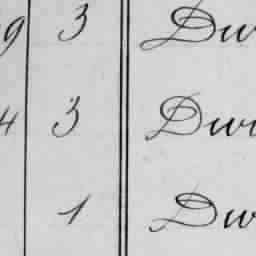 9 3 Dw
4 3 Dwi
1 Dw